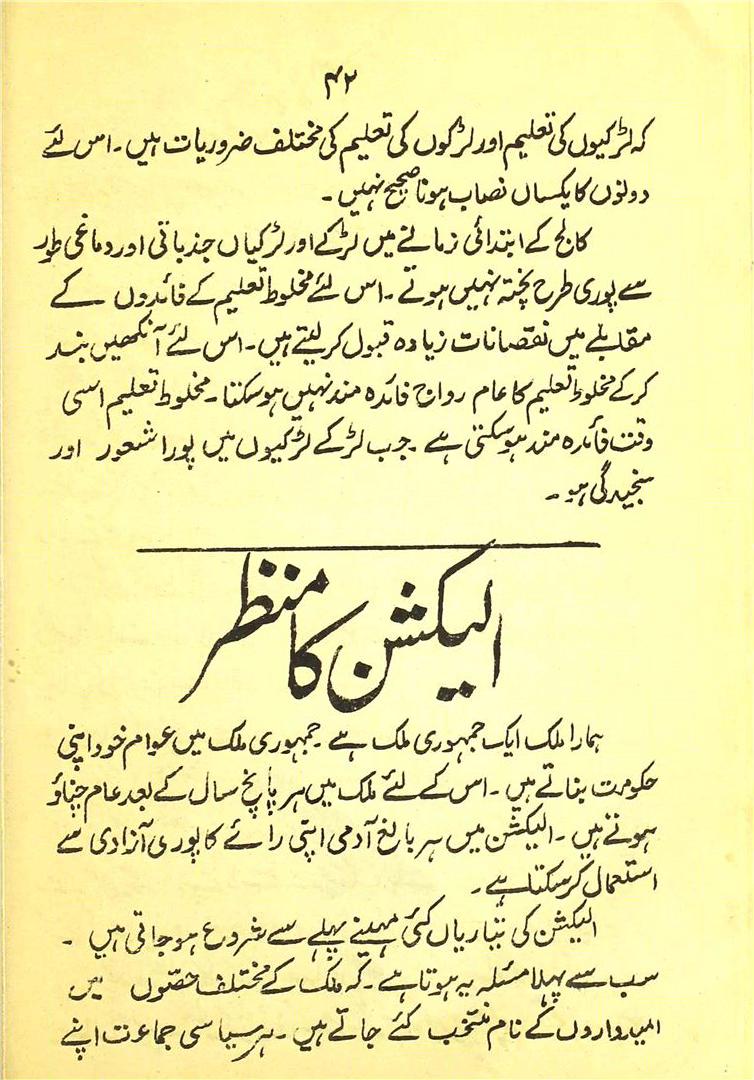 ۴۲
کہ لڑکیوں کی تعلیم اور لڑکوں کی تعلیم کی مختلف ضروریات ہیں۔ اس لئے
دونوں کا یکساں نصاب ہونا صحیح نہیں۔
کالج کے ابتدائی زمانے میں لڑکے اور لڑکیاں جذباتی اور دماغی طور
سے پوری طرح پختہ نہیں ہوتے۔ اس لئے مخلوط تعلیم کے فائدوں کے
مقابلے میں نقصانات زیادہ قبول کر لیتے ہیں۔ اس لئے آنکھیں بند
کر کے مخلوط تعلیم کا عام رواج فائدہ مند نہیں ہو سکتا۔ مخلوط تعلیم اسی
وقت فائدہ مند ہو سکتی ہے۔ جب لڑکے لڑکیوں میں پورا شعور اور
سنجیدگی ہو۔
الیکشن کا منظر
ہمارا ملک ایک جمہوری ملک ہے۔ جمہوری ملک میں عوام خود اپنی
حکومت بناتے ہیں۔ اس کے لئے ملک میں ہر پانچ سال کے بعد عام چناؤ
ہوتے ہیں۔ الیکشن میں ہر بالغ آدمی اپنی رائے کا پوری آزادی سے
استعمال کر سکتا ہے۔
الیکشن کی تیاریاں کئی مہینے پہلے سے شروع ہو جاتی ہیں۔
سب سے پہلا مسئلہ یہ ہوتا ہے۔ کہ ملک کے مختلف حصّوں میں
امیدواروں کے نام منتخب کئے جاتے ہیں۔ ہر سیاسی جماعت اپنے